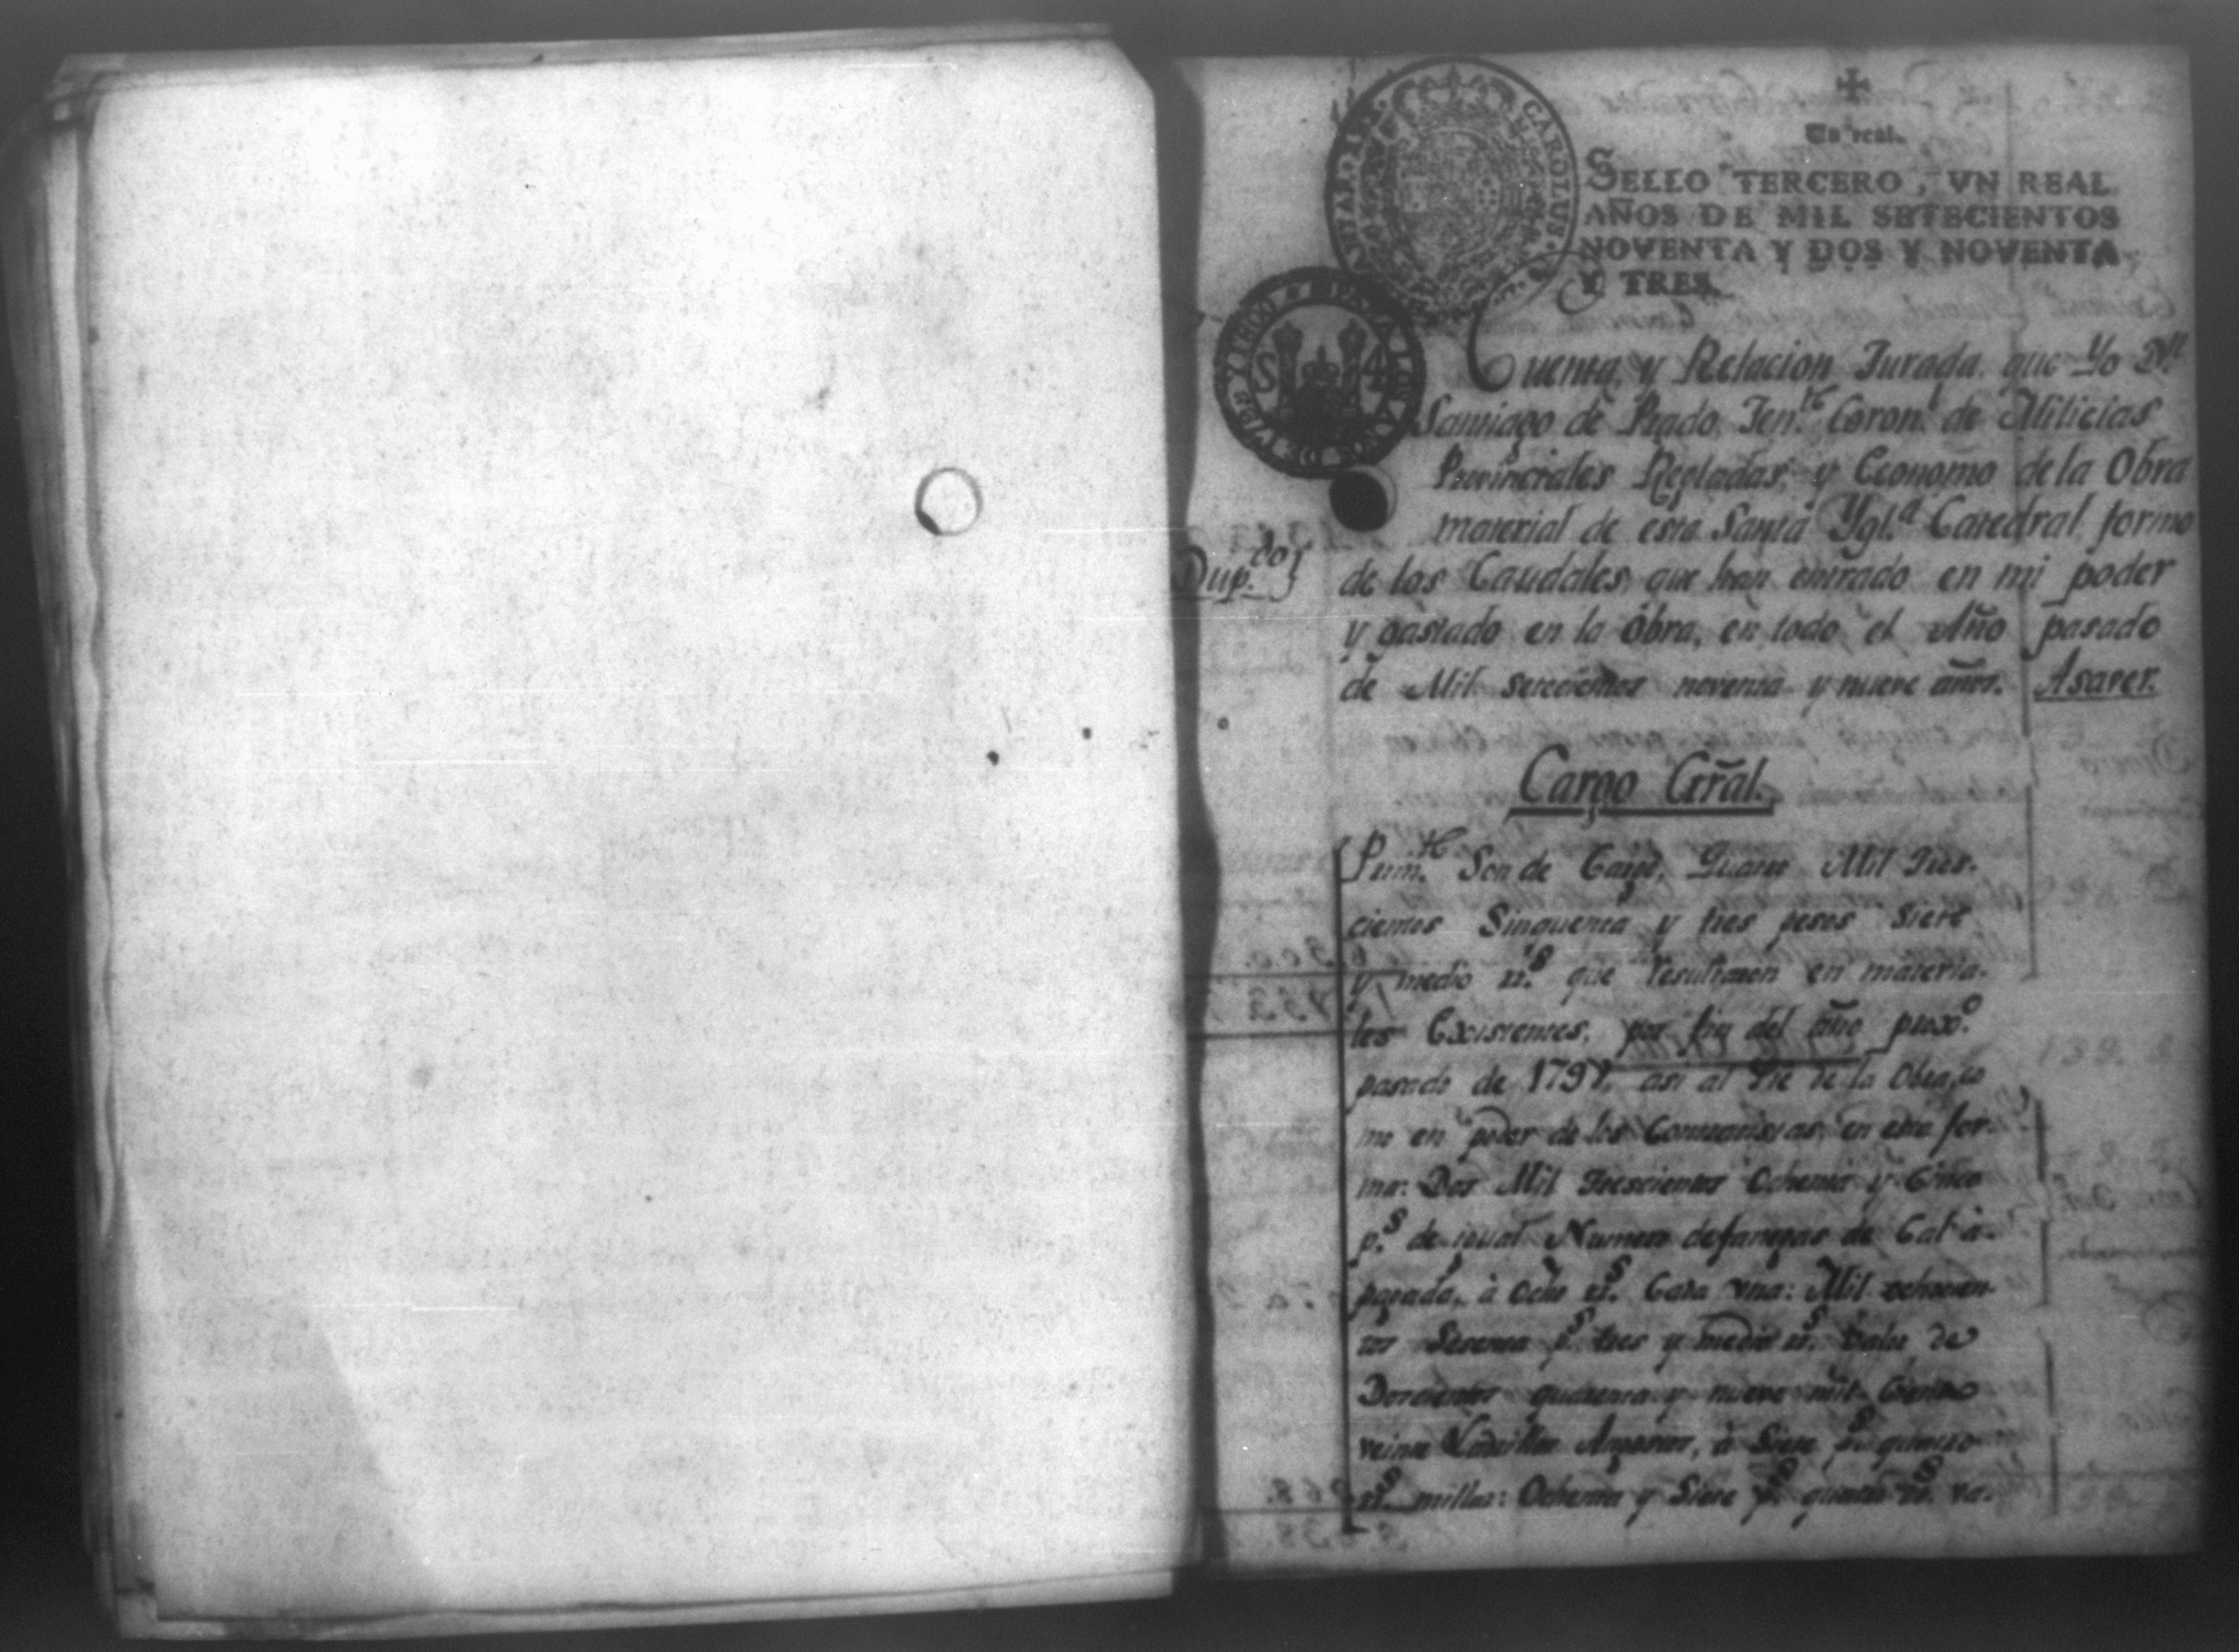 Un real.
SELLO TERCERO, VN REAL
AÑOS DE MIL SETECIENTOS
NOVENTA Y DOS Y NOVENTA
Y TRES.
CAROLUS
Cuenta, y Relacion Jurada, que Yo Dn.
Santiago de Prado, Ten.te Coron.l de Milicias
Provinciales Regladas, y Economo de la Obra
material de esta Santa Ygl.a Catedral, formo
Dup.do
de los Caudales, que han entrado en mi poder
y gastado en la Obra, en todo el Año pasado
de Mil setecientos noventa y nueve años. Asaver.
Cargo Gral.
Prim.te Son de Cargo, Quatro Mil Tres-
cientos Sinquenta y tres pesos siete
y medio rr.s que resultaron en materia-
les Existentes, por fin del año prox.o
pasado de 1798. asi al Pie de la Obra, co
mo en poder de los Contratistas, en esta for-
ma: Dos Mil Trescientos Ochenta y Cinco
p.s de igual Numero de fanegas de Cal a-
pagada, à Ocho rr.s Cada una: Mil ochocien-
tos Sesenta p.s tres y medio rr.s valor de
Doscientos quarenta y nueve mil Ciento
veinte Ladrillos, à Siete p.s quatro
rr.s millar: Ochenta y Siete p.s quatro rr.s va-